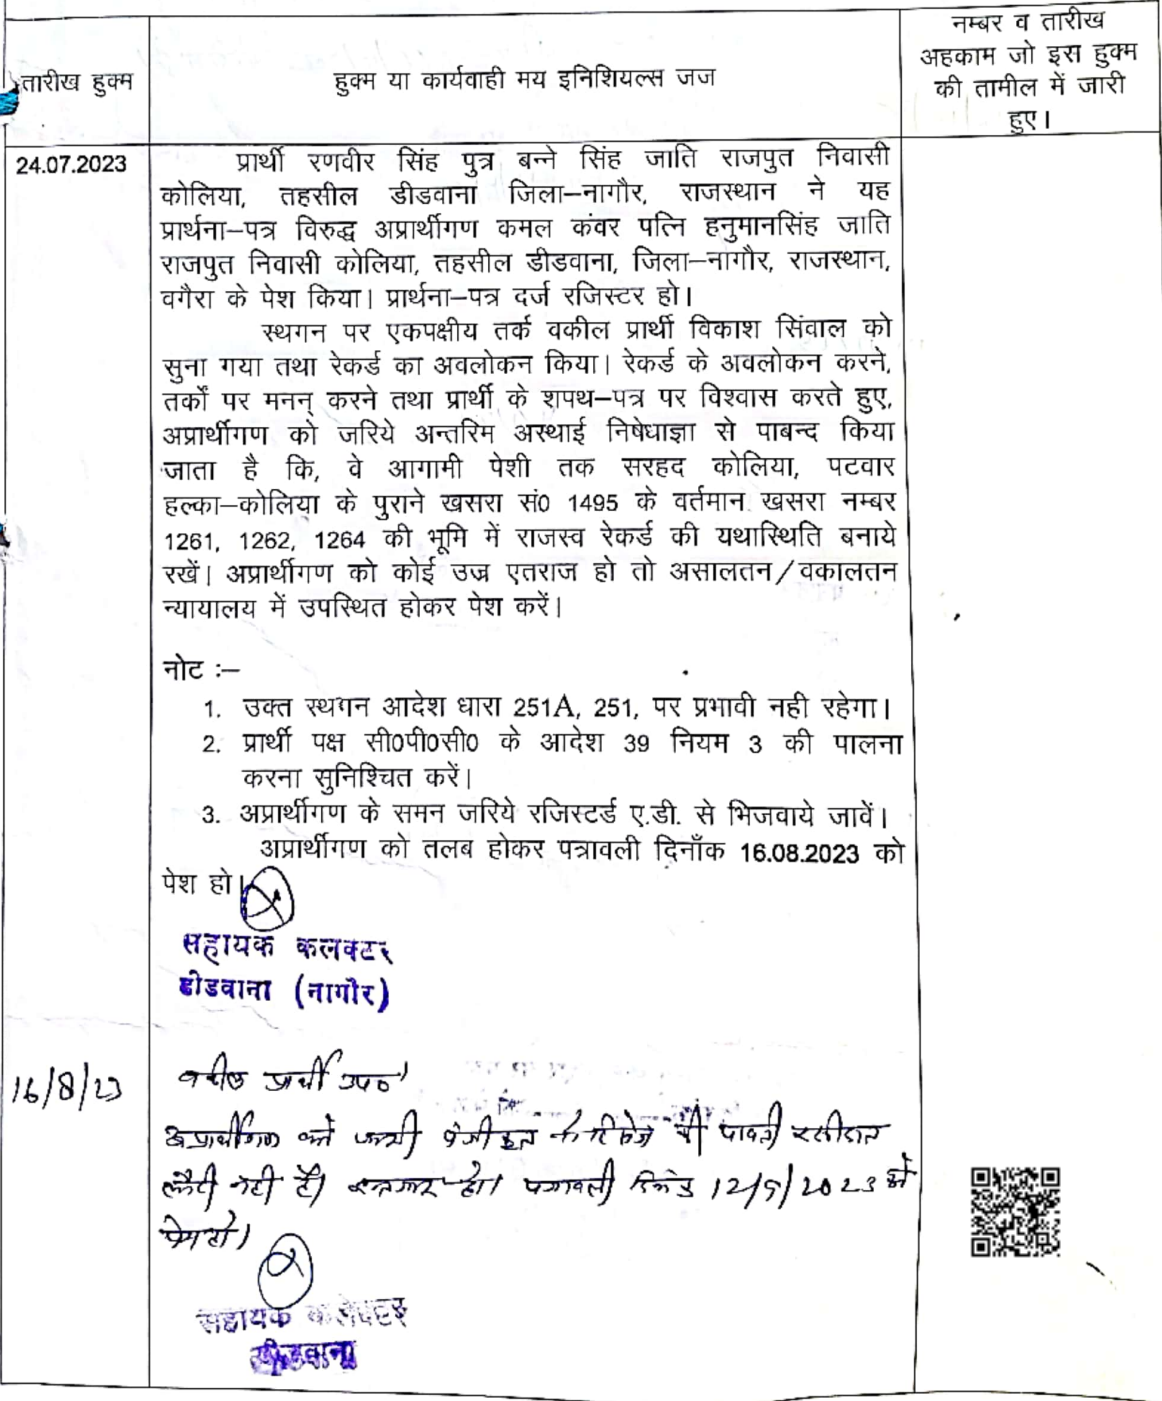 तारीख हुक्म
हुक्म या कार्यवाही मय इनिशियल्स जज
नम्बर व तारीख
अहकाम जो इस हुक्म
की तामील में जारी
हुए।
24.07.2023
प्रार्थी रणवीर सिंह पुत्र बन्ने सिंह जाति राजपुत निवासी
कोलिया, तहसील डीडवाना जिला–नागौर, राजस्थान ने यह
प्रार्थना–पत्र विरुद्ध अप्रार्थीगण कमल कंवर पत्नि हनुमानसिंह जाति
राजपुत निवासी कोलिया, तहसील डीडवाना, जिला–नागौर, राजस्थान,
वगैरा के पेश किया। प्रार्थना–पत्र दर्ज रजिस्टर हो।
स्थगन पर एकपक्षीय तर्क वकील प्रार्थी विकाश सिंवाल को
सुना गया तथा रेकर्ड का अवलोकन किया। रेकर्ड के अवलोकन करने,
तर्को पर मनन् करने तथा प्रार्थी के शपथ–पत्र पर विश्वास करते हुए,
अप्रार्थीगण को जरिये अन्तरिम अस्थाई निषेधाज्ञा से पाबन्द किया
जाता है कि, वे आगामी पेशी तक सरहद कोलिया, पटवार
हल्का–कोलिया के पुराने खसरा सं0 1495 के वर्तमान खसरा नम्बर
1261, 1262, 1264 की भूमि में राजस्व रेकर्ड की यथास्थिति बनाये
रखें। अप्रार्थीगण को कोई उज्र एतराज हो तो असालतन/वकालतन
न्यायालय में उपस्थित होकर पेश करें।
नोट :–
1. उक्त स्थगन आदेश धारा 251A, 251, पर प्रभावी नही रहेगा।
2. प्रार्थी पक्ष सी0पी0सी0 के आदेश 39 नियम 3 की पालना
करना सुनिश्चित करें।
3. अप्रार्थीगण के समन जरिये रजिस्टर्ड ए.डी. से भिजवाये जावें।
अप्रार्थीगण को तलब होकर पत्रावली दिनाँक 16.08.2023 को
पेश हो।
सहायक कलक्टर
डीडवाना (नागौर)
16/8/23
वकील प्रार्थी उप०।
अप्रार्थीगण को जारी नोटिसेज की पावती रसीदात
लौटी नही है। इन्तजार हो। पत्रावली दिनांक 12/9/2023 को
पेश हो।
सहायक कलेक्टर
डीडवाना